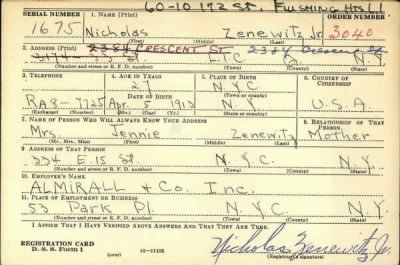 60-10 172 St. Flushing Hts L.I.
SERIAL NUMBER 1. NAME (Print) ORDER NUMBER
1675 Nicholas Zenewitz Jr. 3040
2. ADDRESS (Print) 2384 CRESCENT ST 2384 Crescent St
L.I.C. N.Y.
(Number and street or R. F. D. number) (Town) (County) (State)
3. TELEPHONE 4. AGE IN YEARS 5. PLACE OF BIRTH 6. COUNTRY OF CITIZENSHIP
27 N.Y.C.
DATE OF BIRTH (Town or county)
RA8-7725 Apr. 5 1913 N.Y. U.S.A.
(Mo.) (Day) (Yr.) (State or country)
7. NAME OF PERSON WHO WILL ALWAYS KNOW YOUR ADDRESS 8. RELATIONSHIP OF THAT PERSON
Mrs. Jennie Zenewitz Mother
(Mr., Mrs., Miss) (First) (Middle) (Last)
9. ADDRESS OF THAT PERSON
334 E. 15 St N.Y.C. N.Y.
(Number and street or R. F. D. number) (Town) (County) (State)
10. EMPLOYER'S NAME
ALMIRALL & Co. Inc.
11. PLACE OF EMPLOYMENT OR BUSINESS
53 Park Pl. N.Y.C. N.Y.
(Number and street or R. F. D. number) (Town) (County) (State)
I AFFIRM THAT I HAVE VERIFIED ABOVE ANSWERS AND THAT THEY ARE TRUE.
REGISTRATION CARD
D. S. S. Form 1 16-17105 Nicholas Zenewitz Jr.
(Registrant's signature)